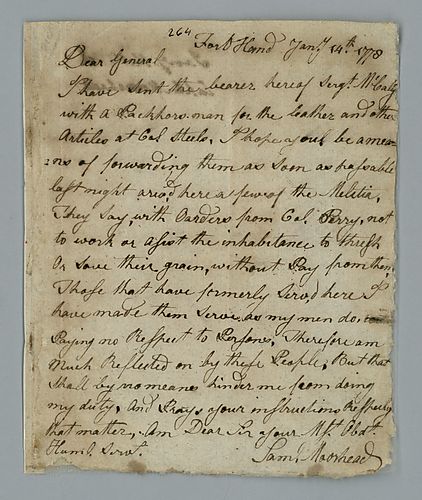 264
Fort Hand Jany 14th 1778
Dear General
I have sent the bearer hereof Sergt McCally
with a Packhorsman for the Leather and other
Articles at Col Steels, I hope youl be a mea=
ns of forwarding them as soon as possable
last night arivd here a few of the Militia,
They Say, with Oarders from Col. Perry, not
to work or asist the inhabitance to thresh
Or save their grain, without Pay from them
Those that have formerly Servd here I
have made them Serve as my men do.
Paying no Respect to Persons, Therefore am
Much Reflected on by these People, But that
Shall by no means hinder me from doing
my duty, And Prays your instructions Respecting
that matter, Am Dear Sir your Mst. Obdt
Humb. Servt.
Saml Moorhead